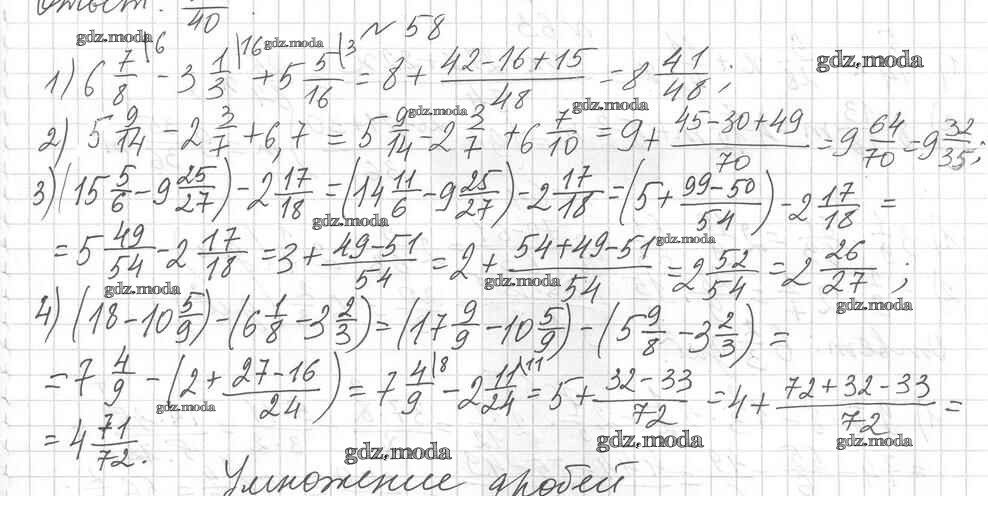 Ответ: /40
№ 58
1) 6 7/8 |6 - 3 1/3 |16 + 5 5/16 |3 = 8 + (42-16+15)/48 = 8 41/48;
2) 5 9/14 - 2 3/7 + 6,7 = 5 9/14 - 2 3/7 + 6 7/10 = 9 + (45-30+49)/70 = 9 64/70 = 9 32/35;
3) (15 5/6 - 9 25/27) - 2 17/18 = (14 11/6 - 9 25/27) - 2 17/18 = (5 + (99-50)/54) - 2 17/18 =
= 5 49/54 - 2 17/18 = 3 + (49-51)/54 = 2 + (54+49-51)/54 = 2 52/54 = 2 26/27;
4) (18 - 10 5/9) - (6 1/8 - 3 2/3) = (17 9/9 - 10 5/9) - (5 9/8 - 3 2/3) =
= 7 4/9 - (2 + (27-16)/24) = 7 4/9 |8 - 2 11/24 \11 = 5 + (32-33)/72 = 4 + (72+32-33)/72 =
= 4 71/72.
Умножение дробей
gdz.moda
gdz.moda
gdz.moda
gdz.moda
gdz.moda
gdz.moda
gdz.moda
gdz.moda
gdz.moda
gdz.moda
gdz.moda
gdz.moda
gdz.moda
gdz.moda